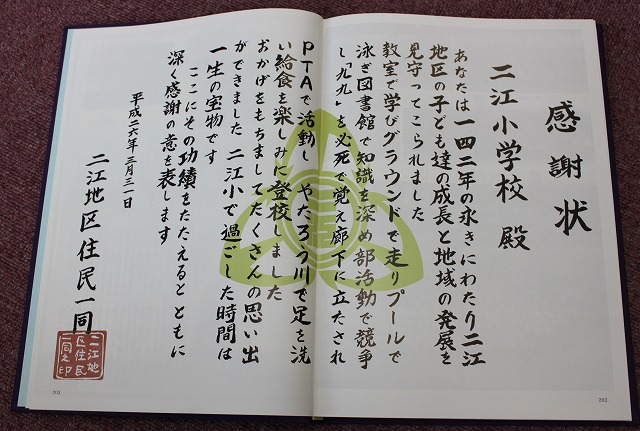 感謝状
二江小学校 殿
あなたは一四二年の永きにわたり二江
地区の子ども達の成長と地域の発展を
見守ってこられました
教室で学びグラウンドで走りプールで
泳ぎ図書館で知識を深め部活動で競争
し「九九」を必死で覚え廊下に立たされ
PTAで活動し やたろう川で足を洗
い給食を楽しみに登校しました
おかげをもちましてたくさんの思い出
ができました 二江小で過ごした時間は
一生の宝物です
ここにその功績をたたえるとともに
深く感謝の意を表します
平成二六年三月三日
二江地区住民一同
二江地
区住民
一同之印
203
202